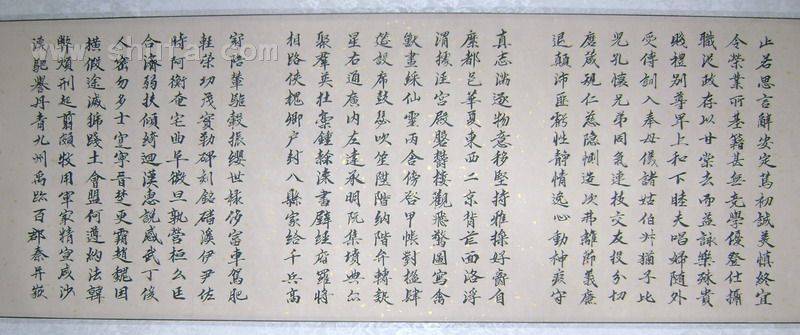 止若思言辭安定篤初誠美慎終宜
令榮業所基籍甚無竟學優登仕攝
職從政存以甘棠去而益詠樂殊貴
賤禮別尊卑上和下睦夫唱婦隨外
受傅訓入奉母儀諸姑伯叔猶子比
兒孔懷兄弟同氣連枝交友投分切
磨箴規仁慈隱惻造次弗離節義廉
退顛沛匪虧性靜情逸心動神疲守
真志滿逐物意移堅持雅操好爵自
縻都邑華夏東西二京背芒面洛浮
渭據涇宮殿盤鬱樓觀飛驚圖寫禽
獸畫綵仙靈丙舍傍啟甲帳對楹肆
筵設席鼓瑟吹笙陞階納階弁轉疑
星右通廣內左達承明既集墳典亦
聚群英杜稾鍾隸漆書壁經府羅將
相路俠槐卿戶封八縣家給千兵高
冠陪輦驅轂振纓世祿侈富車駕肥
輕策功茂實勒碑刻銘磻溪伊尹佐
時阿衡奄宅曲阜微旦孰營桓公匡
合濟弱扶傾綺迴漢惠說感武丁俊
乂密勿多士寔寧晉楚更霸趙魏困
橫假途滅虢踐土會盟何遵約法韓
弊煩刑起翦頗牧用軍最精宣威沙
漠馳譽丹青九州禹跡百郡秦并嶽